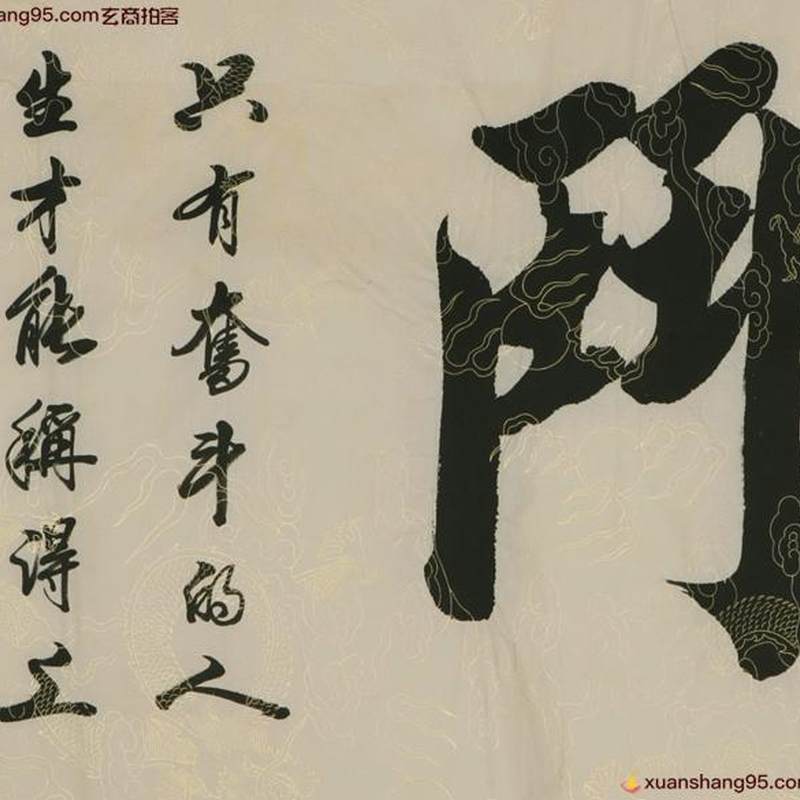 hang95.com玄商拍客
鬥
只有奮斗的人
生才能稱得上
xuanshang95.com